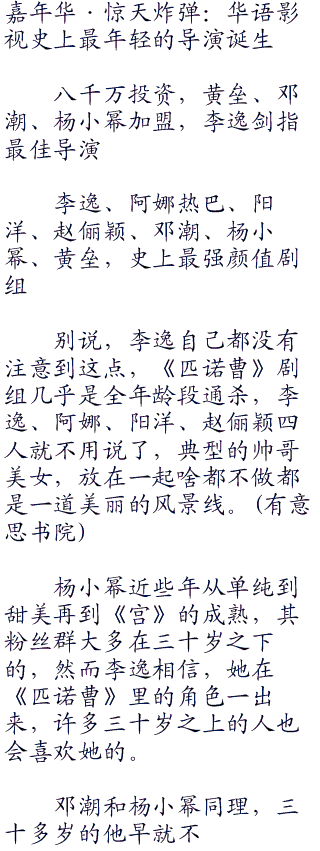 嘉年华·惊天炸弹：华语影
视史上最年轻的导演诞生
八千万投资，黄垒、邓
潮、杨小幂加盟，李逸剑指
最佳导演
李逸、阿娜热巴、阳
洋、赵俪颖、邓潮、杨小
幂、黄垒，史上最强颜值剧
组
别说，李逸自己都没有
注意到这点，《匹诺曹》剧
组几乎是全年龄段通杀，李
逸、阿娜、阳洋、赵俪颖四
人就不用说了，典型的帅哥
美女，放在一起啥都不做都
是一道美丽的风景线。(有意
思书院)
杨小幂近些年从单纯到
甜美再到《宫》的成熟，其
粉丝群大多在三十岁之下
的，然而李逸相信，她在
《匹诺曹》里的角色一出
来，许多三十岁之上的人也
会喜欢她的。
邓潮和杨小幂同理，三
十多岁的他早就不